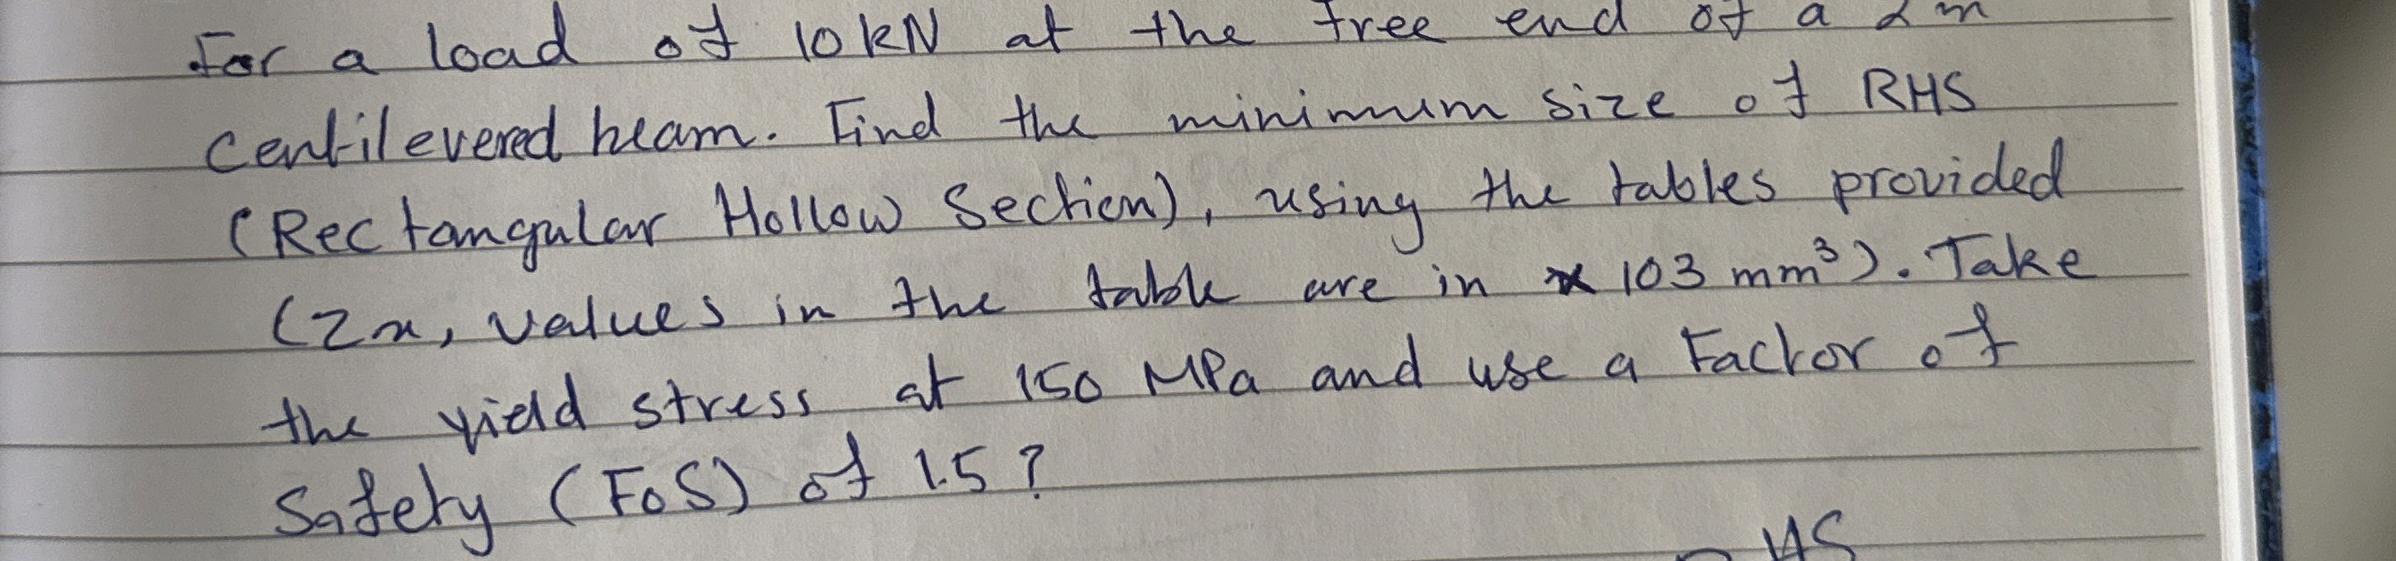 For a load of 10 kN at the free end of a 2m
Centilevered beam. Find the minimum size of RHS
(Rectangular Hollow Section), using the tables provided
(Zx, values in the table are in x 103 mm³). Take
the yield stress at 150 MPa and use a Factor of
Safety (FoS) of 1.5?